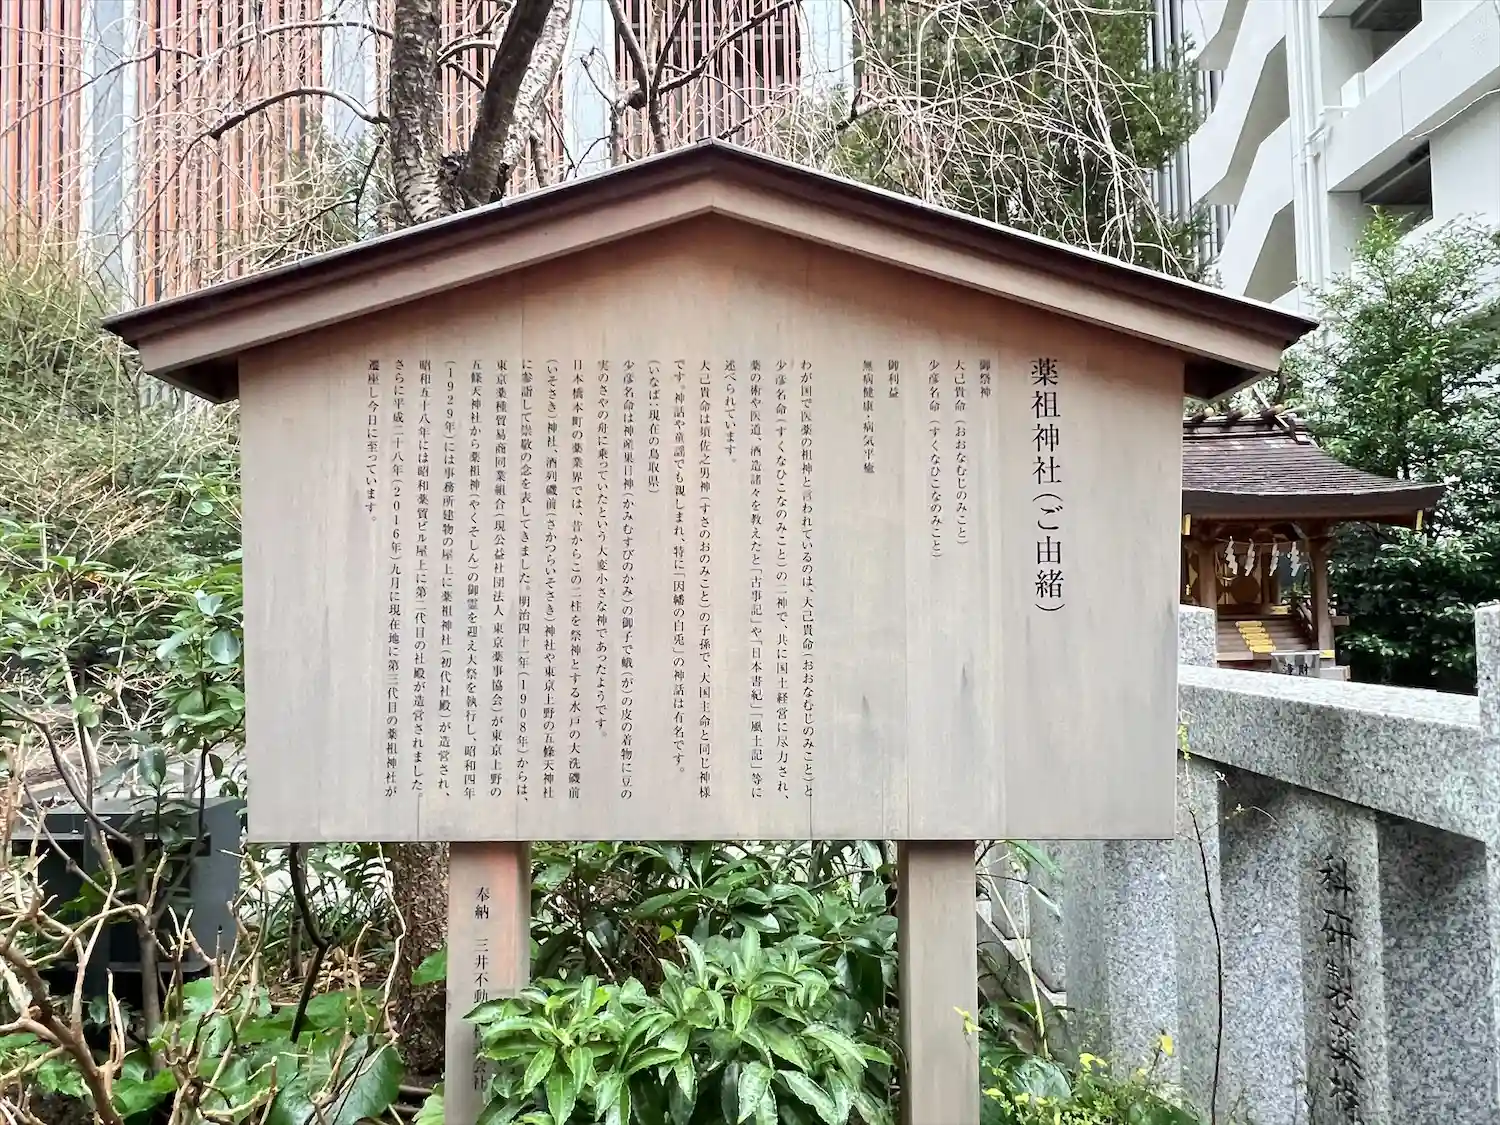 薬祖神社（ご由緒）
御祭神
大己貴命（おおなむじのみこと）
少彦名命（すくなひこなのみこと）
御利益
無病健康・病気平癒
わが国で医薬の祖神と言われているのは、大己貴命（おおなむじのみこと）と
少彦名命（すくなひこなのみこと）の二神で、共に国土経営に尽力され、
薬の術や医道、酒造諸々を教えたと「古事記」や「日本書紀」「風土記」等に
述べられています。
大己貴命は須佐之男神（すさのおのみこと）の子孫で、大国主命と同じ神様
です。神話や童謡でも親しまれ、特に「因幡の白兎」の神話は有名です。
（いなば：現在の鳥取県）
少彦名命は神産巣日神（かみむすびのかみ）の御子で蛾（が）の皮の着物に豆の
実のさやの舟に乗っていたという大変小さな神であったようです。
日本橋本町の薬業界では、昔からこの二柱を祭神とする水戸の大洗磯前
（いそさき）神社、酒列磯前（さかつらいそさき）神社や東京上野の五條天神社
に参詣して崇敬の念を表してきました。明治四十一年（1908年）からは、
東京薬種貿易商同業組合（現公益社団法人 東京薬事協会）が東京上野の
五條天神社から薬祖神（やくそしん）の御霊を迎え大祭を執行し、昭和四年
（1929年）には事務所建物の屋上に薬祖神社（初代社殿）が造営され、
昭和五十八年には昭和薬貿ビル屋上に第二代目の社殿が造営されました。
さらに平成二十八年（2016年）九月に現在地に第三代目の薬祖神社が
遷座し今日に至っています。
奉納 三井不動 会社
科研製薬株